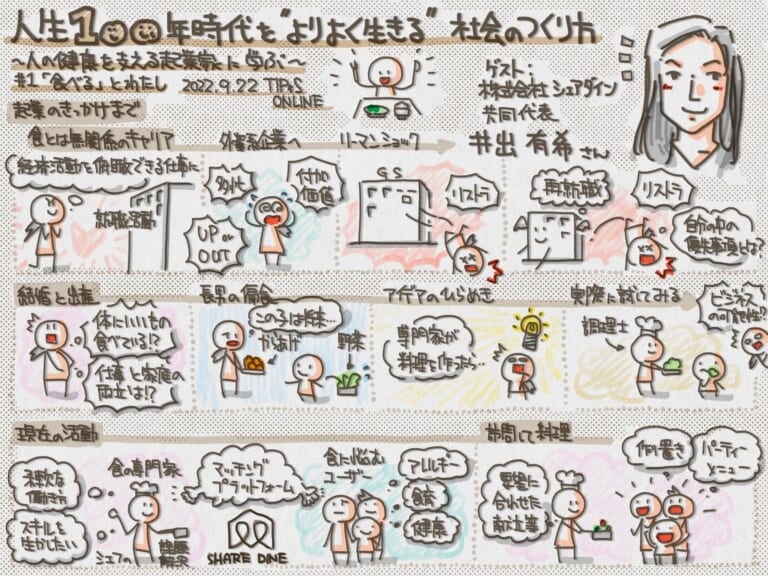 人生100年時代を"よりよく生きる" 社会のつくり方
〜人の健康を支える起業家に学ぶ〜
#1「食べる」とわたし 2022.9.22 TIP*S
ONLINE
ゲスト:
株式会社シェアダイン
共同代表
井出 有希さん
起業のきっかけまで
食とは無関係のキャリア
外資系企業へ
リーマンショック
経済活動を俯瞰できる仕事に
就職活動
多忙
付加
価値
UP or
OUT
GS
リストラ
再就職
リストラ
自分の中の
優先事項とは?
結婚と出産
長男の偏食
アイデアのひらめき
実際に試してみる
体にいいもの
食べている!?
仕事と家庭の
両立は!?
からあげ
野菜
専門家が
料理を作ったら…
調理士
ビジネス
の可能性!?
現在の活動
訪問して料理
柔軟な
働き方
スキルを
生かしたい
食の専門家
シェフの
課題
解決
マッチング
プラットフォーム
SHARE DINE
食に悩む
ユーザー
アレルギー
偏食
健康
要望に
合わせた
献立案
作り置き
パーティー
メニュー